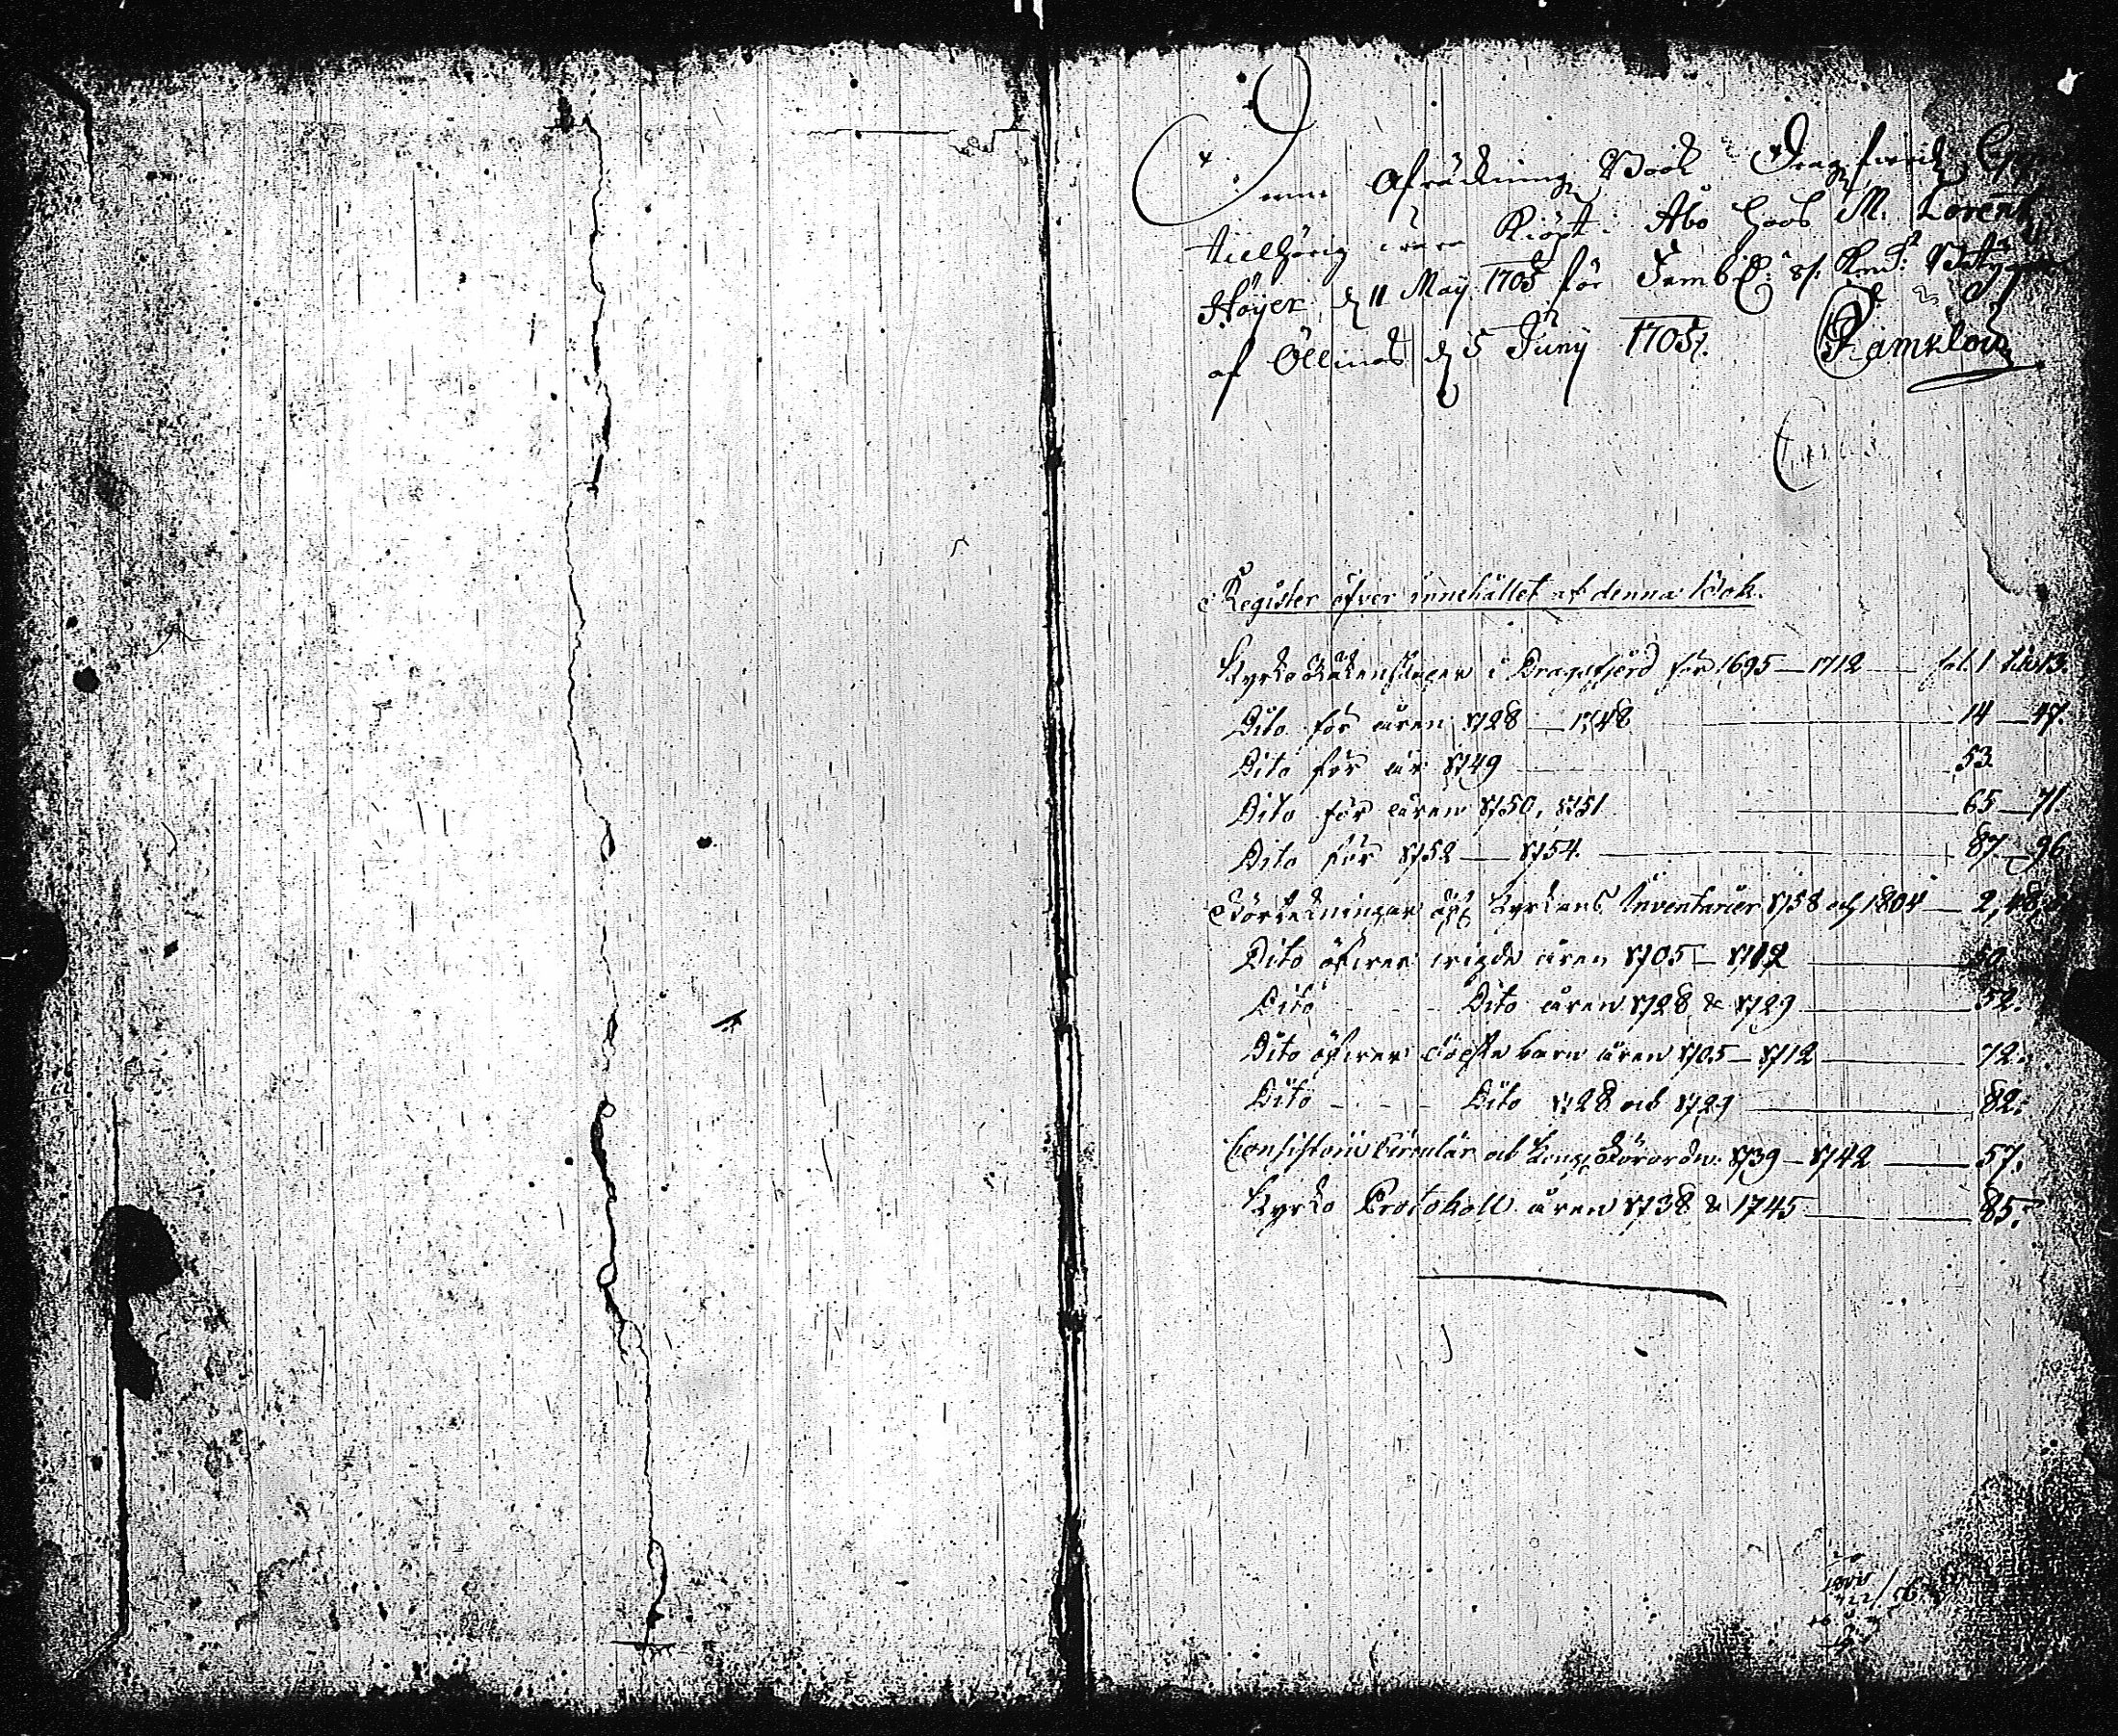 Denna Afräckning Book Dragzfierdz
tillhörig ware Kiöpt i Åbo hoos M. Lorentz
Höijer d 11 Maij 1705 för Fem
af Öllmos d 5 Junij 1705.
Register öfver innehållet af denna Bok.
Kyrko Räkenskaper i Dragsfjerd för 1695—1712 fol. 1 till 13.
Dito för åren 1728—1748 14—47.
Dito för år 1749 53.
Dito för åren 1750, 1751 65—71.
Dito för 1752—1754. 87—96
Förteckningar öfver Kyrkans Inventarier 1758 och 1804 — 2, 48,
Dito öfwer wigde åren 1705—1712 50.
Dito - - - Dito åren 1728 & 1729 52.
Dito öfwer döpte barn åren 1705—1712 72.
Dito - - - Dito 1728 och 1729 82.
Consistorii Circulär och Kongl. Förordn. 1739—1742 57.
Kyrko Protokoll åren 1738 & 1745 85.